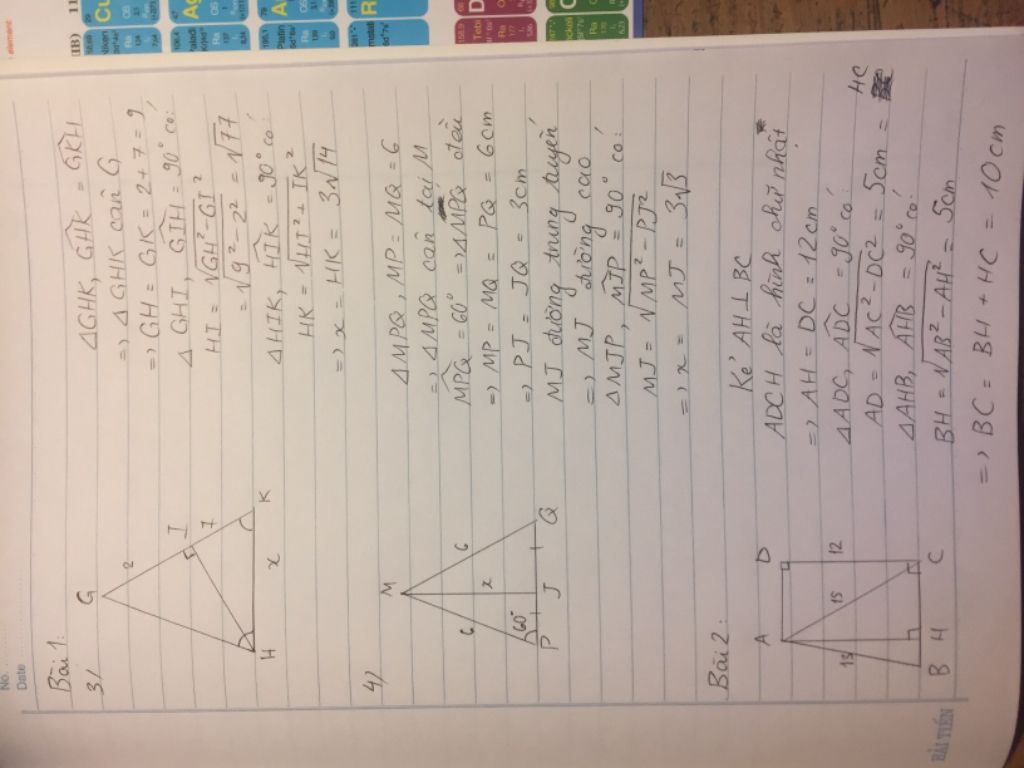 No.
Date
Bài 1:
3/
G
2
I
7
H
x
K
ΔGHK, GHK = GKH
=> ΔGHK cân G
=> GH = GK = 2 + 7 = 9
ΔGHI, GIH = 90° có:
HI = √GH² - GI²
= √9² - 2² = √77
ΔHIK, HIK = 90° có:
HK = √HI² + IK²
=> x = HK = 3√14
4)
M
6
x
6
60°
P
J
Q
ΔMPQ, MP = MQ = 6
=> ΔMPQ cân tại M
MPQ = 60° => ΔMPQ đều
=> MP = MQ = PQ = 6cm
=> PJ = JQ = 3cm
MJ đường trung tuyến
=> MJ đường cao
ΔMJP, MJP = 90° có:
MJ = √MP² - PJ²
=> x = MJ = 3√3
Bài 2:
A
D
13
15
12
B
H
C
Kẻ AH ⊥ BC
ADCH là hình chữ nhật
=> AH = DC = 12cm
ΔADC, ADC = 90° có:
AD = √AC² - DC² = 5cm = HC
ΔAHB, AHB = 90° có:
BH = √AB² - AH² = 5cm
=> BC = BH + HC = 10cm
HẢI TIẾN